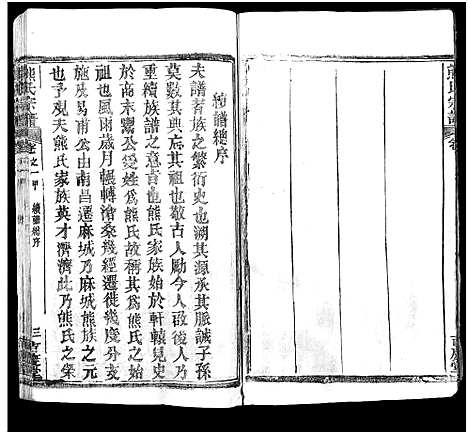 熊氏宗譜
卷
百慶堂
續譜總序
夫譜者族之繁衍史也溯其源承其脈誠子孫
莫數其典忘其祖也敬古人勵今人啟後人乃
重續族譜之意旨也熊氏家族始於軒轅見史
於商末鬻公受姓為熊氏故稱其為熊氏之始
祖也風雨歲月帳轉滄桑幾經遷徙幾度分支
施及易甫公由南昌遷麻城乃麻城熊族之元
也予观夫熊氏家族英才濟濟此乃熊氏之榮
熊氏宗譜
卷之一甲
續譜總序
三
百慶堂